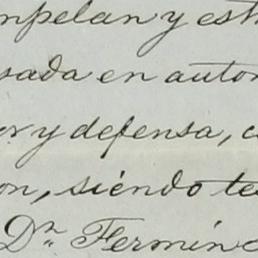 mpelan y est
sada en autor
or y defensa, c
on, siendo te
Dn. Fermín